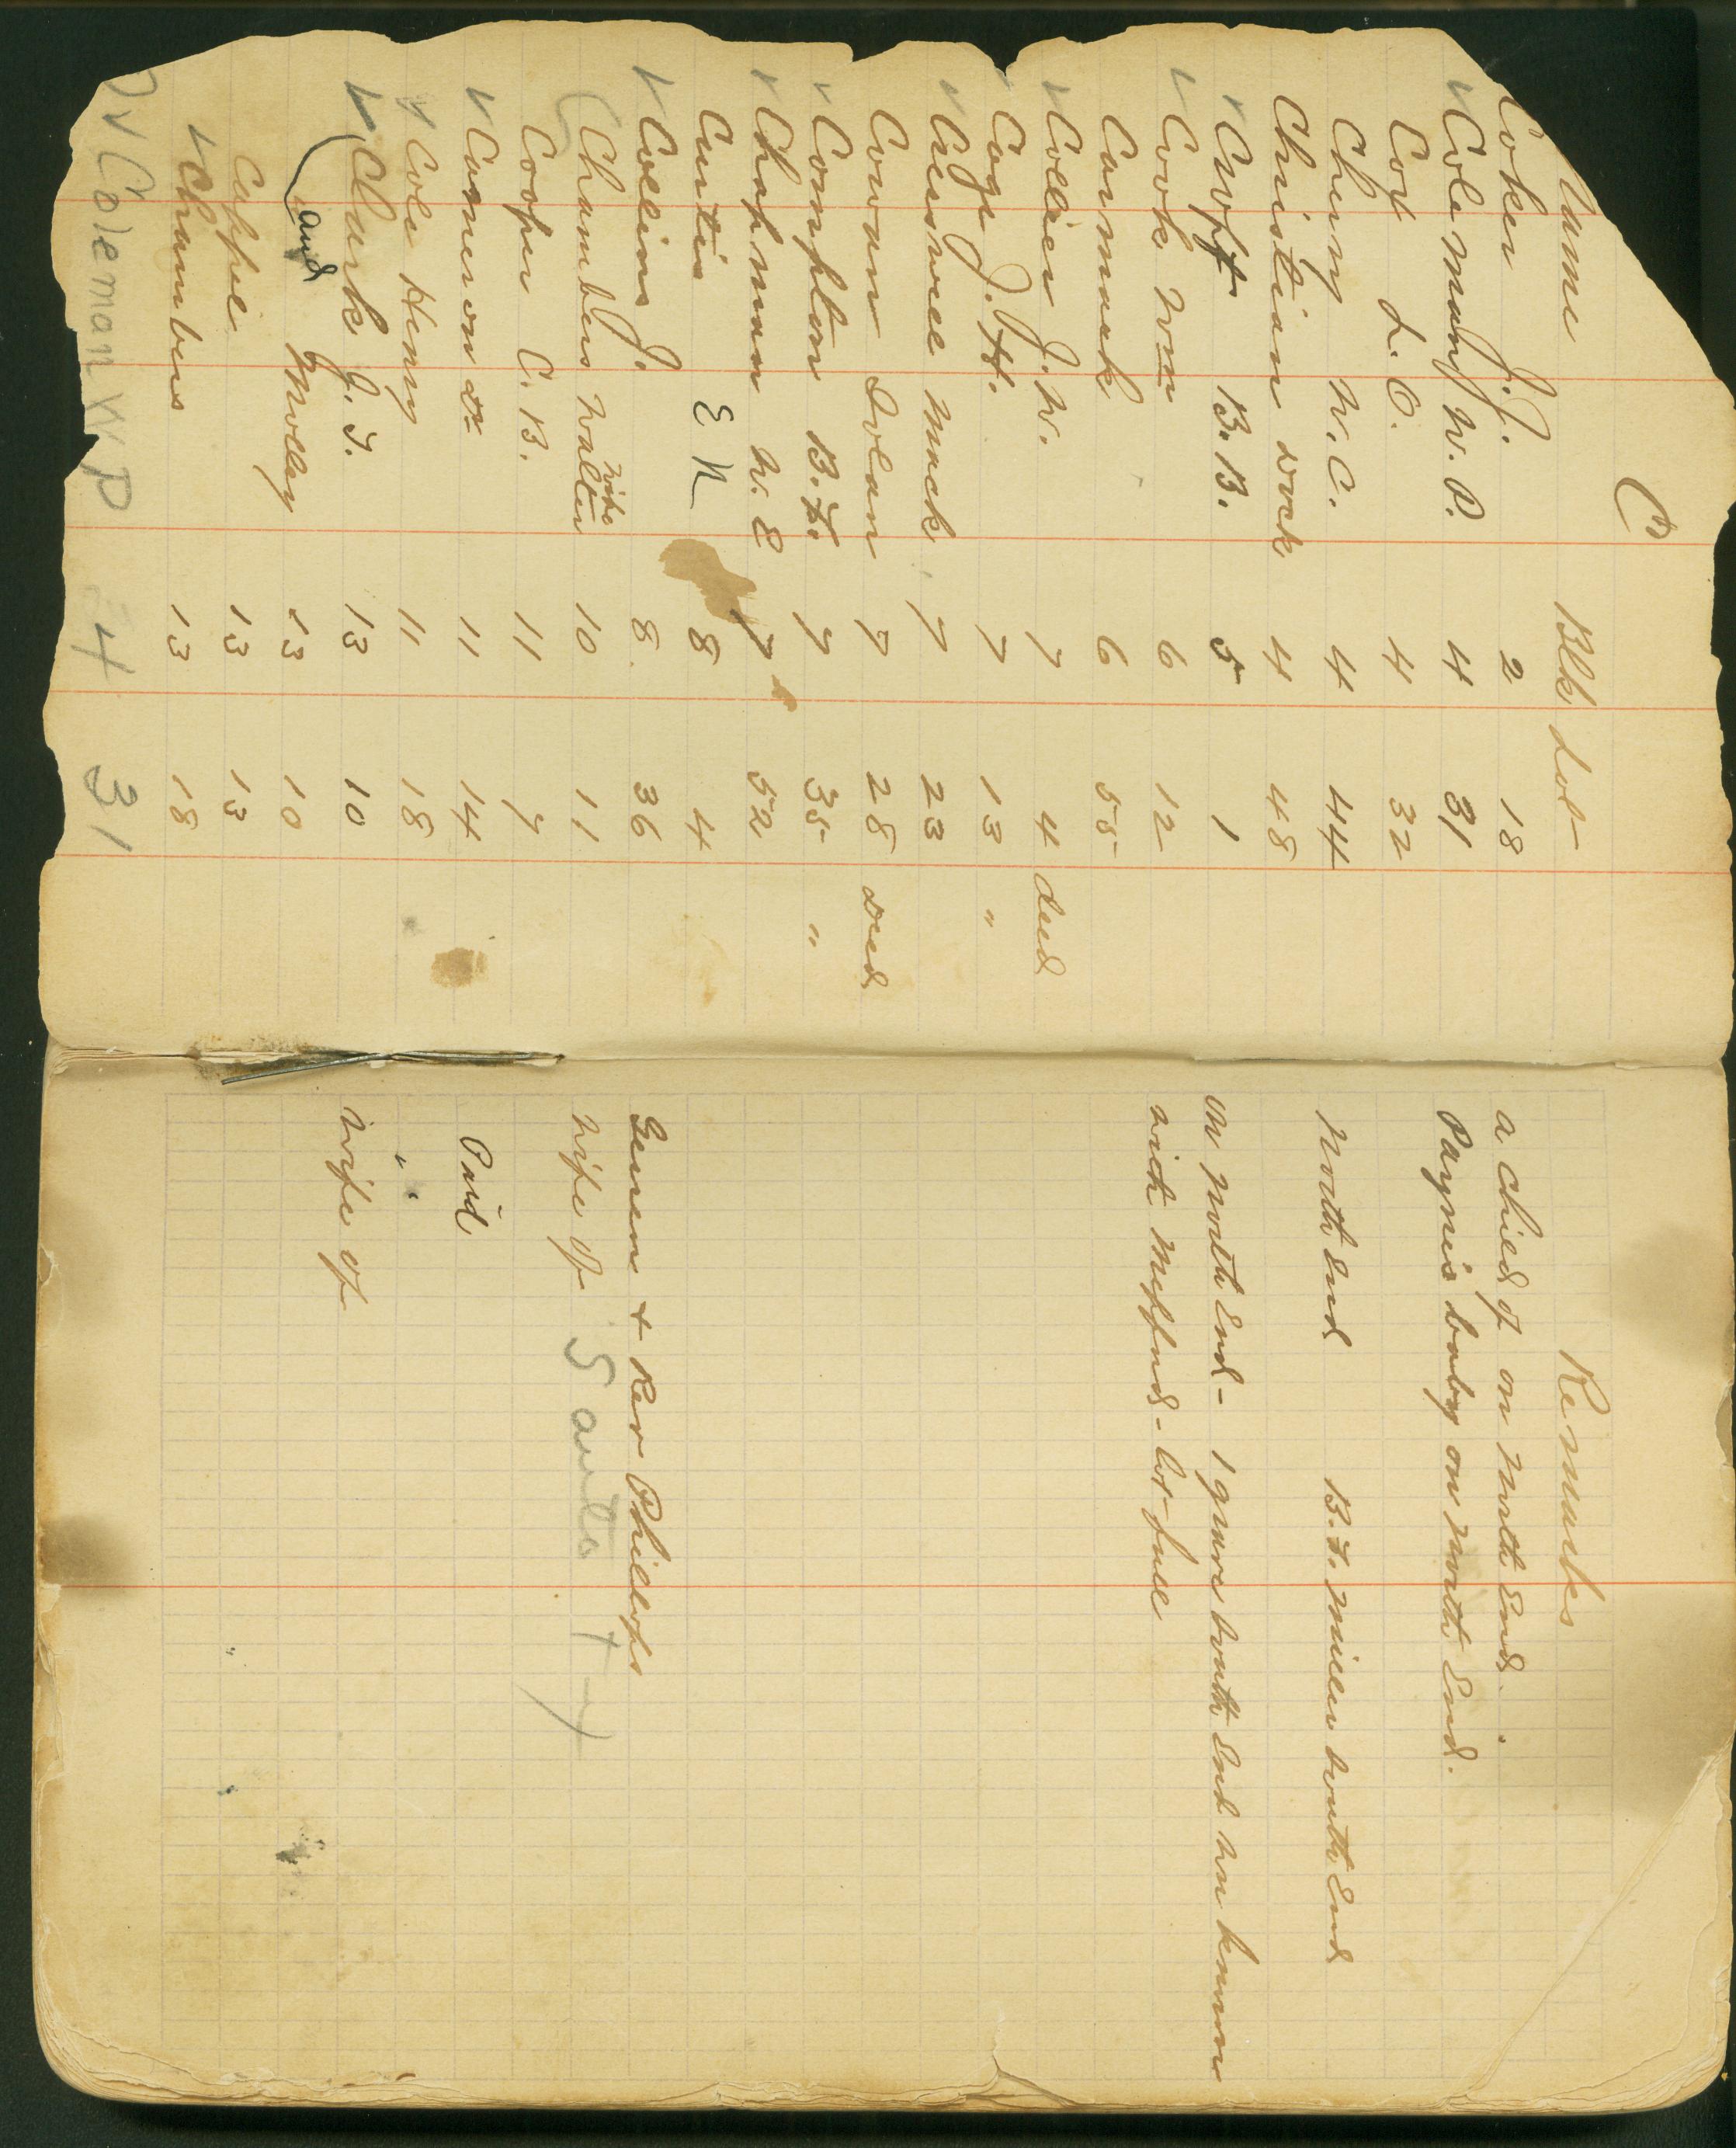 C
Name Blk Lot Remarks
Coker J. J. 2 18 a child of on North End.
✓ Coleman W. P. 4 31 Payne's baby on North End.
Coy L. C. 4 32
Cherry W. C. 4 44 North End B. F. Miller South End
Christian Dock 4 48
✓ Croft B. B. 5 1 on North End - 1 grave South End unknown
✓ Cook Wm 6 12 with Mefford - Lot full
Carmack 6 55
✓ Collier J. W. 7 4 deed
Cage J. H. 7 13 "
✓ Creswell Mack 7 23
Cowan Dolan 7 28 Deed
✓ Compton B. F. 7 35 "
✓ Chapman W. E 7 52
Curtis E N 8 4
✓ Collins J. 8 36 & Rev Phillips
Chambers Walter wife 10 11 wife of
Cooper C. B. 11 7
✓ Cameron Dr 11 14 Paid
✓ Cole Henry 11 18 "
✓ Clark J. T. 13 10 wife of
and Molley 13 10
Cappel 13 13
✓ Chambers 13 18
✓ Coleman W P 4 31